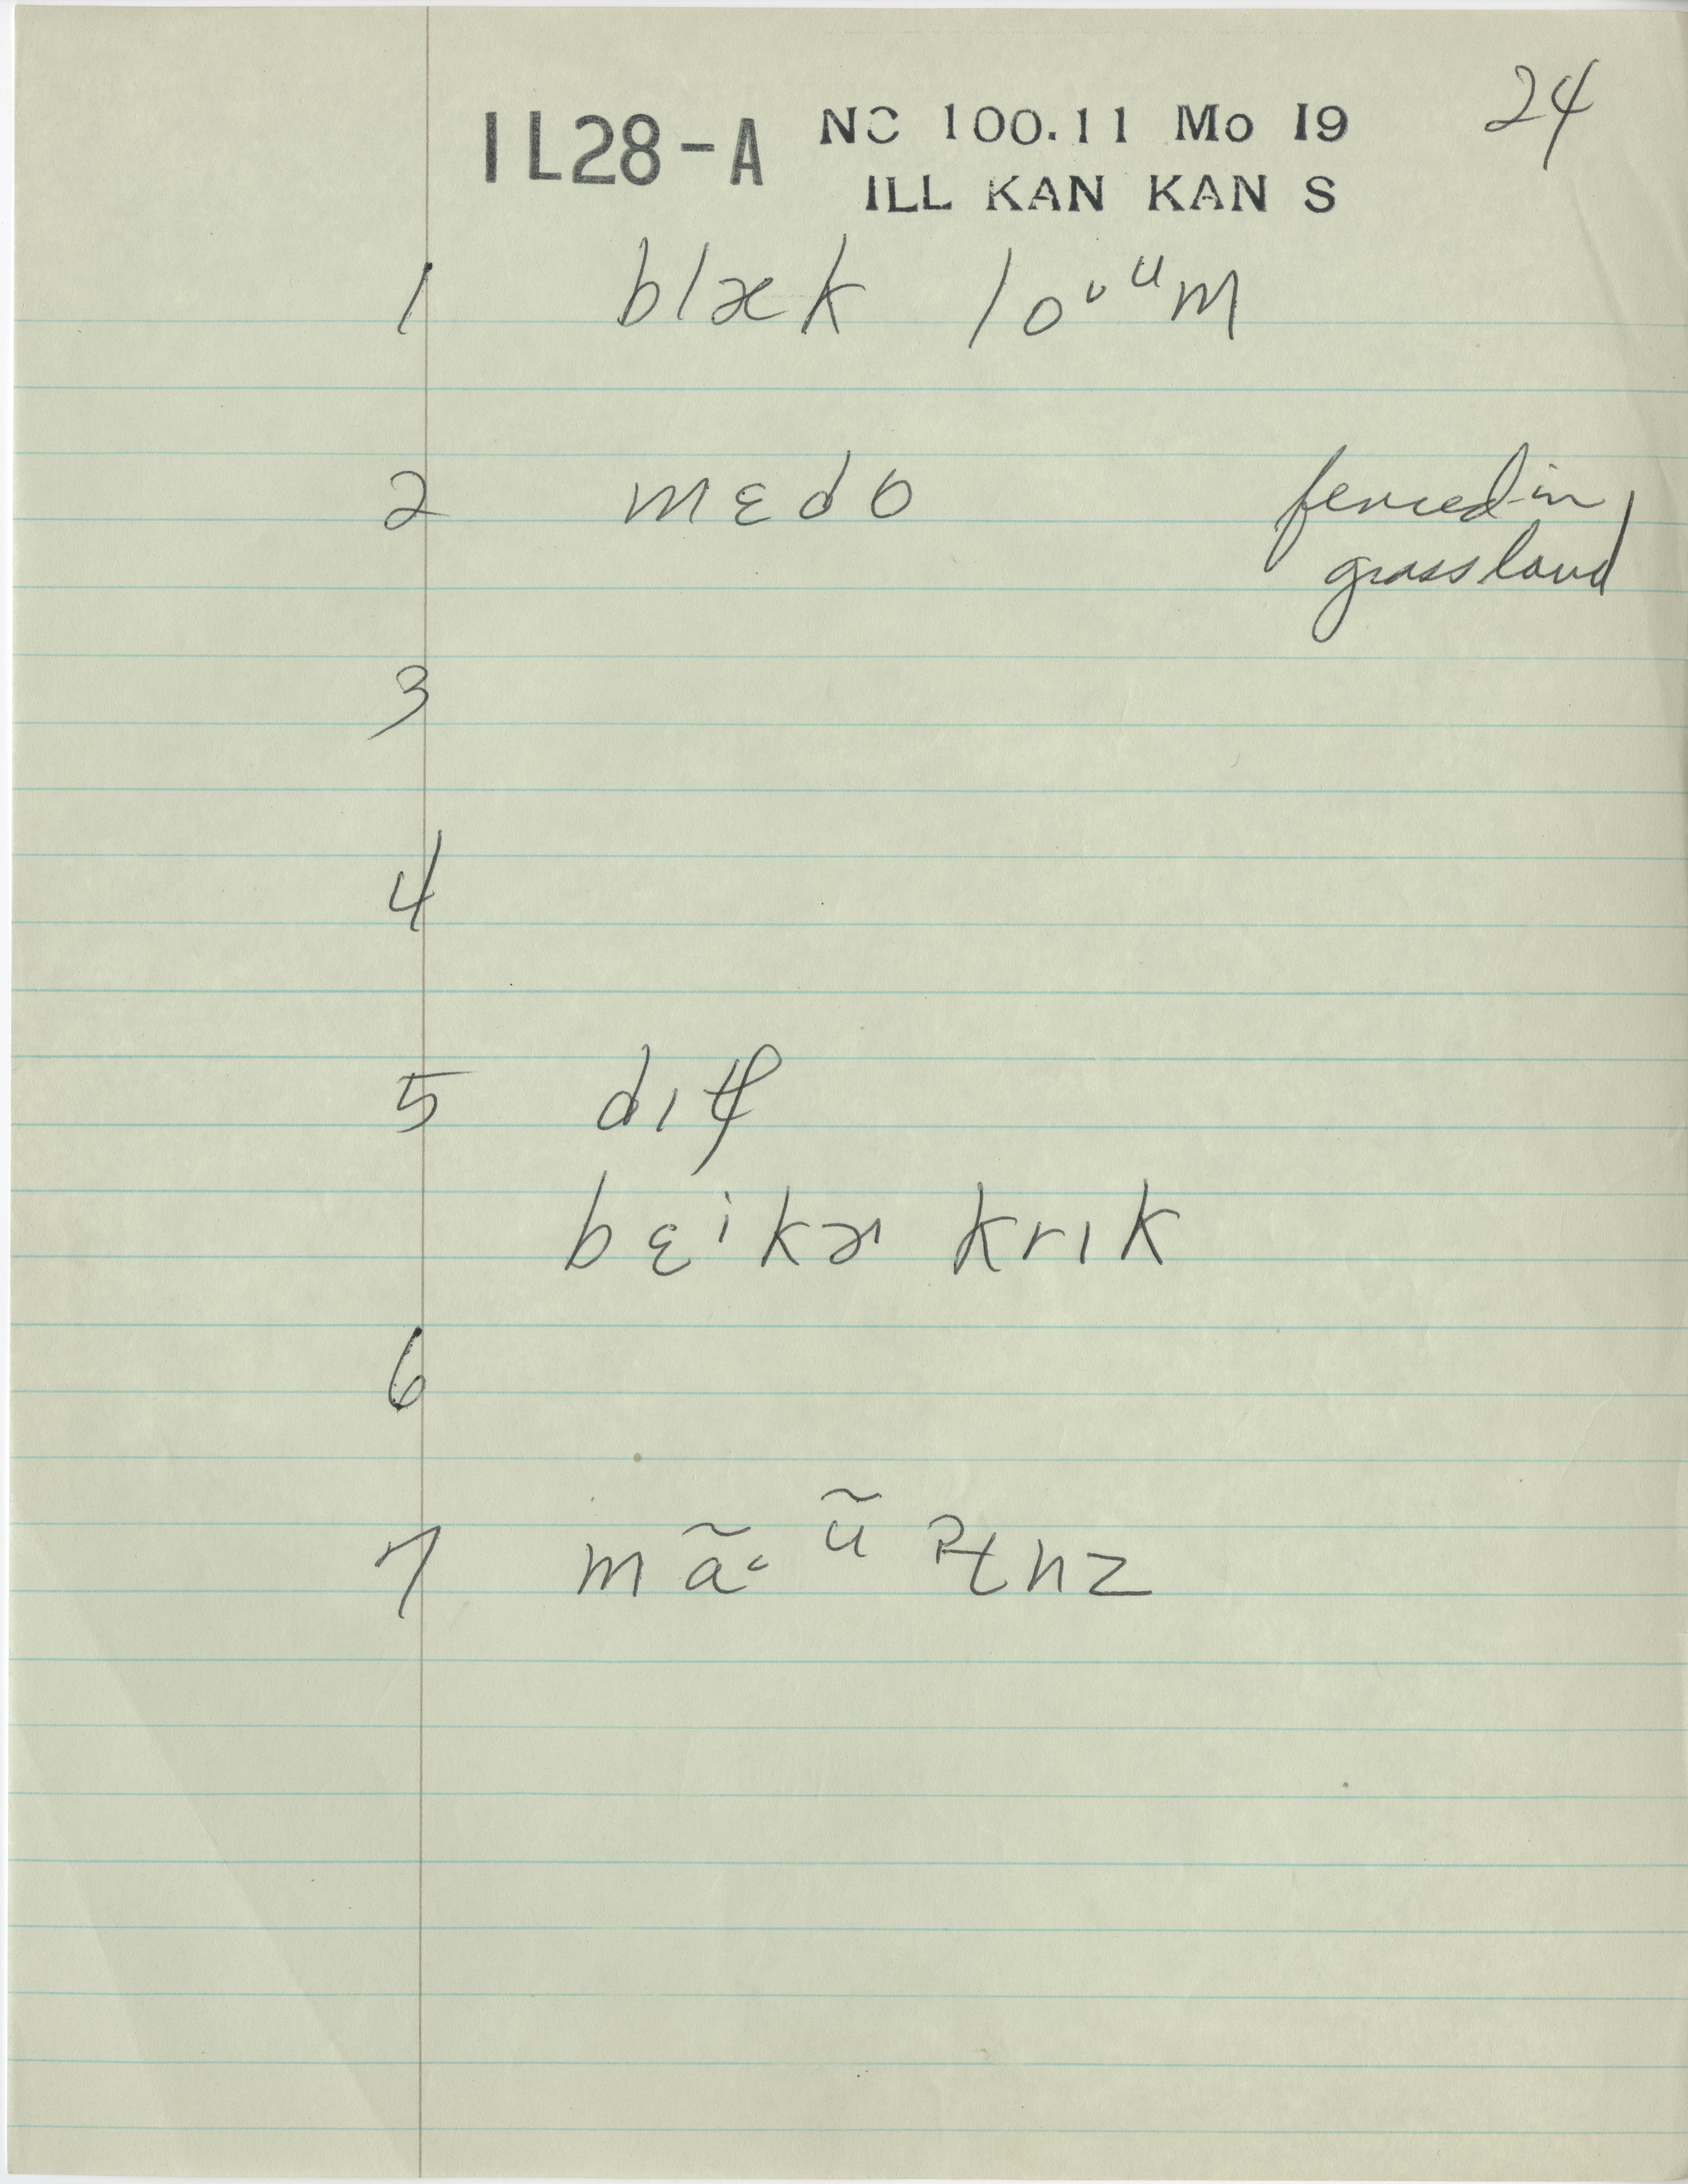 24
1L28-A NC 100.11 Mo I9
ILL KAN KAN S
1 blæk loˑᵘm
2 mɛdo fenced in
grassland
3
4
5 dɪtʃ
bɛⁱkɚ krɪk
6
7 mãˑᵘ̃ʔtnz